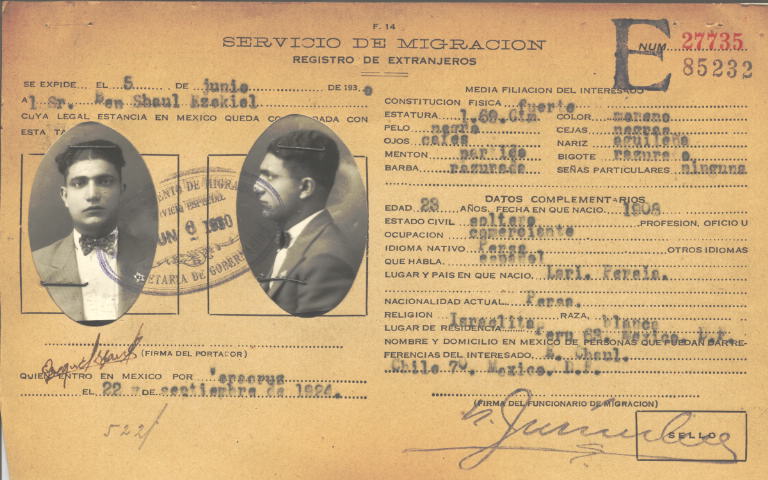 F. 14
SERVICIO DE MIGRACION
REGISTRO DE EXTRANJEROS
SE EXPIDE EL 5 DE junio DE 1930
A l Sr. Ben Shaul Ezekiel
CUYA LEGAL ESTANCIA EN MEXICO QUEDA CON
ESTA TA
JUN 6 1930
(FIRMA DEL PORTADOR)
QUIEN ENTRO EN MEXICO POR Veracruz
EL 22 DE septiembre de 1924.
522/
E NUM. 27735
85232
MEDIA FILIACION DEL INTERESADO
CONSTITUCION FISICA fuerte
ESTATURA 1.69.Ctm COLOR moreno
PELO negro CEJAS negras
OJOS cafes NARIZ aguileña
MENTON BIGOTE rasurado.
BARBA rasurada SEÑAS PARTICULARES ninguna
DATOS COMPLEMENTARIOS
EDAD 23 AÑOS, FECHA EN QUE NACIO 1908
ESTADO CIVIL soltero PROFESION, OFICIO U
OCUPACION comerciante
IDIOMA NATIVO Persa OTROS IDIOMAS
QUE HABLA. español
LUGAR Y PAIS EN QUE NACIO. Lari. Persia.
NACIONALIDAD ACTUAL. Persa.
RELIGION Israelita RAZA, blanca
LUGAR DE RESIDENCIA Peru 62 Mexico. D.F.
NOMBRE Y DOMICILIO EN MEXICO DE PERSONAS QUE PUEDAN DAR RE-
FERENCIAS DEL INTERESADO. Chaul.
Chile 70. Mexico. D.F.
(FIRMA DEL FUNCIONARIO DE MIGRACION)
SELLO